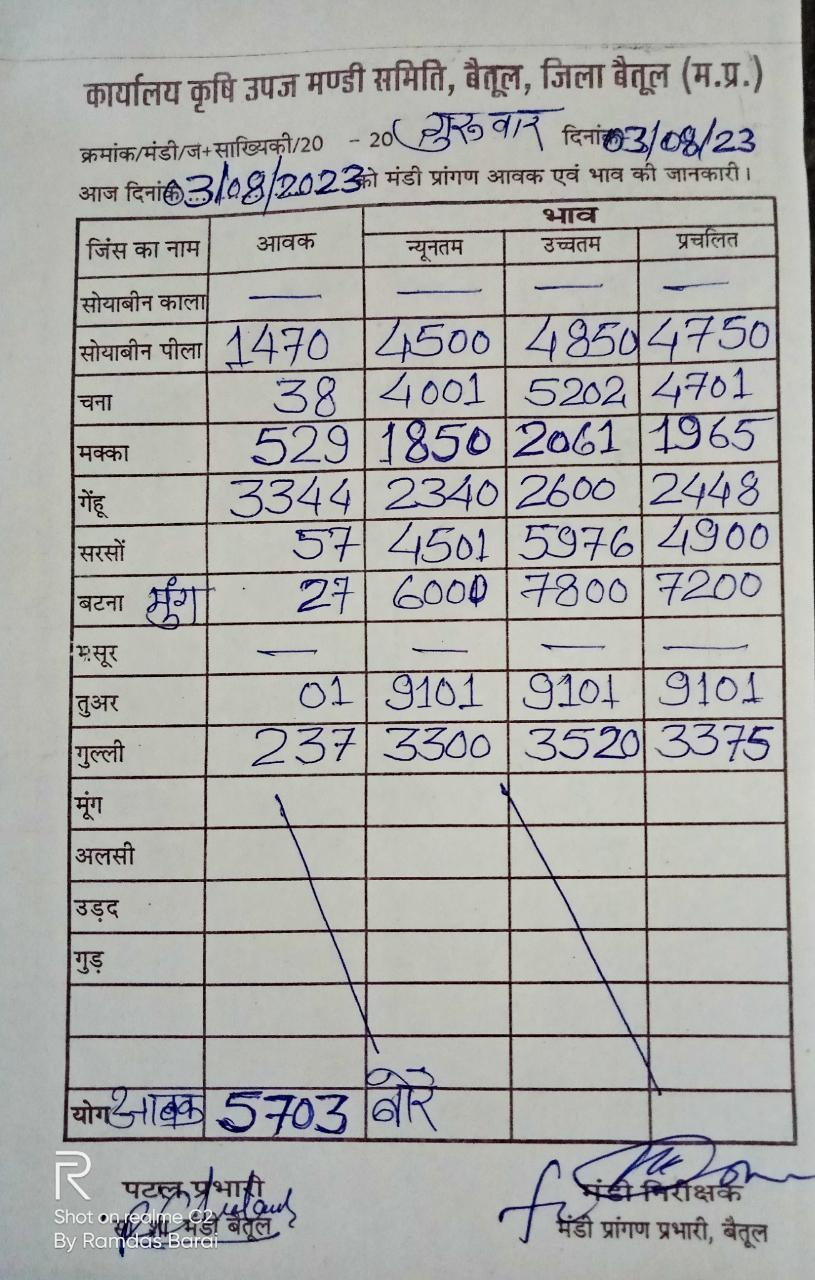 कार्यालय कृषि उपज मण्डी समिति, बैतूल, जिला बैतूल (म.प्र.)
क्रमांक/मंडी/ज+साख्यिकी/20 - 20 गुरूवार दिनांक 03/08/23
आज दिनांक 03/08/2023 को मंडी प्रांगण आवक एवं भाव की जानकारी।
भाव
जिंस का नाम आवक न्यूनतम उच्चतम प्रचलित
सोयाबीन काला — — — —
सोयाबीन पीला 1470 4500 4850 4750
चना 38 4001 5202 4701
मक्का 529 1850 2061 1965
गेंहू 3344 2340 2600 2448
सरसों 57 4501 5976 4900
बटना मुंग 27 6000 7800 7200
मसूर — — — —
तुअर 01 9101 9101 9101
गुल्ली 237 3300 3520 3375
मूंग
अलसी
उड़द
गुड़
योग आवक 5703 बोरे
पटल प्रभारी मंडी निरीक्षक
मंडी बैतूल मंडी प्रांगण प्रभारी, बैतूल
R
Shot on realme C2
By Ramdas Barai